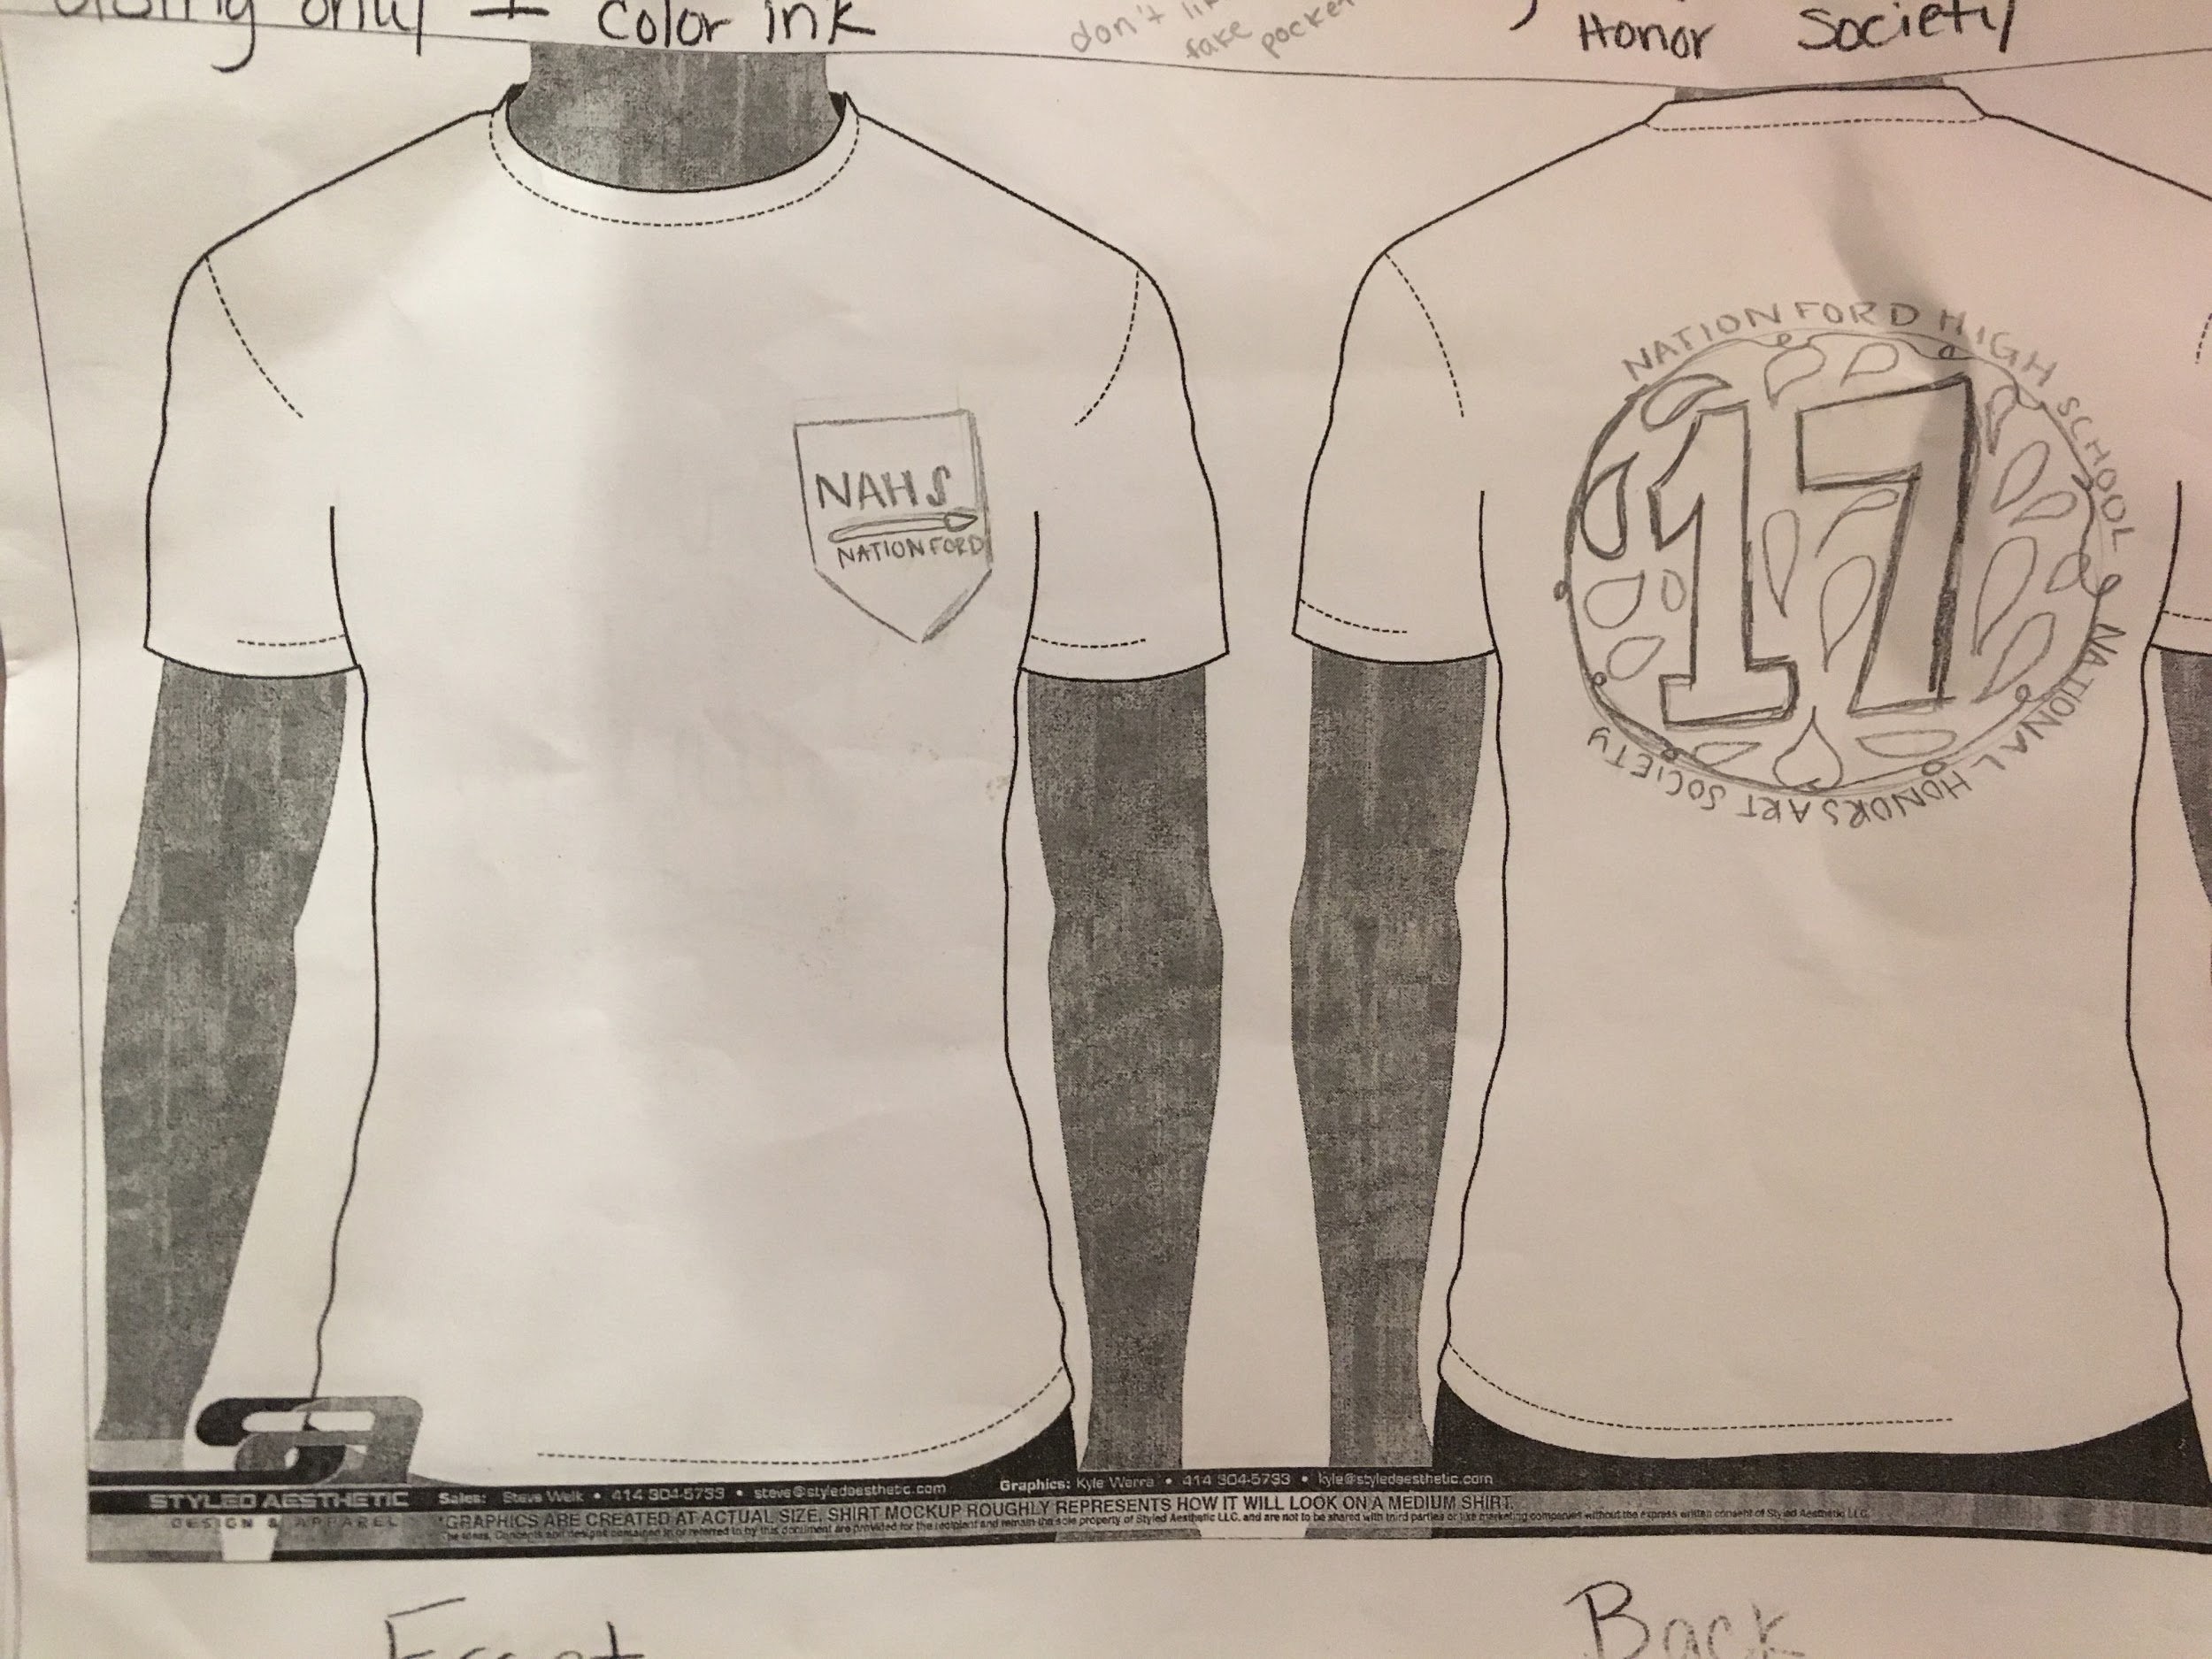 only + color ink
don't
fake
pocket
Honor Society
NAHS
NATION FORD
NATION FORD HIGH SCHOOL
17
NATIONAL HONORS ART SOCIETY
STYLED AESTHETIC
DESIGN & APPAREL
Sales: Steve Welk • 414 304-5733 • steve@styledaesthetic.com
Graphics: Kyle Werra • 414 304-5733 • kyle@styledaesthetic.com
*GRAPHICS ARE CREATED AT ACTUAL SIZE, SHIRT MOCKUP ROUGHLY REPRESENTS HOW IT WILL LOOK ON A MEDIUM SHIRT.
The ideas, concepts and designs contained in or referred to by this document are provided for the recipient and remain the sole property of Styled Aesthetic LLC. and are not to be shared with third parties or like marketing companies without the express written consent of Styled Aesthetic LLC.
Front
Back